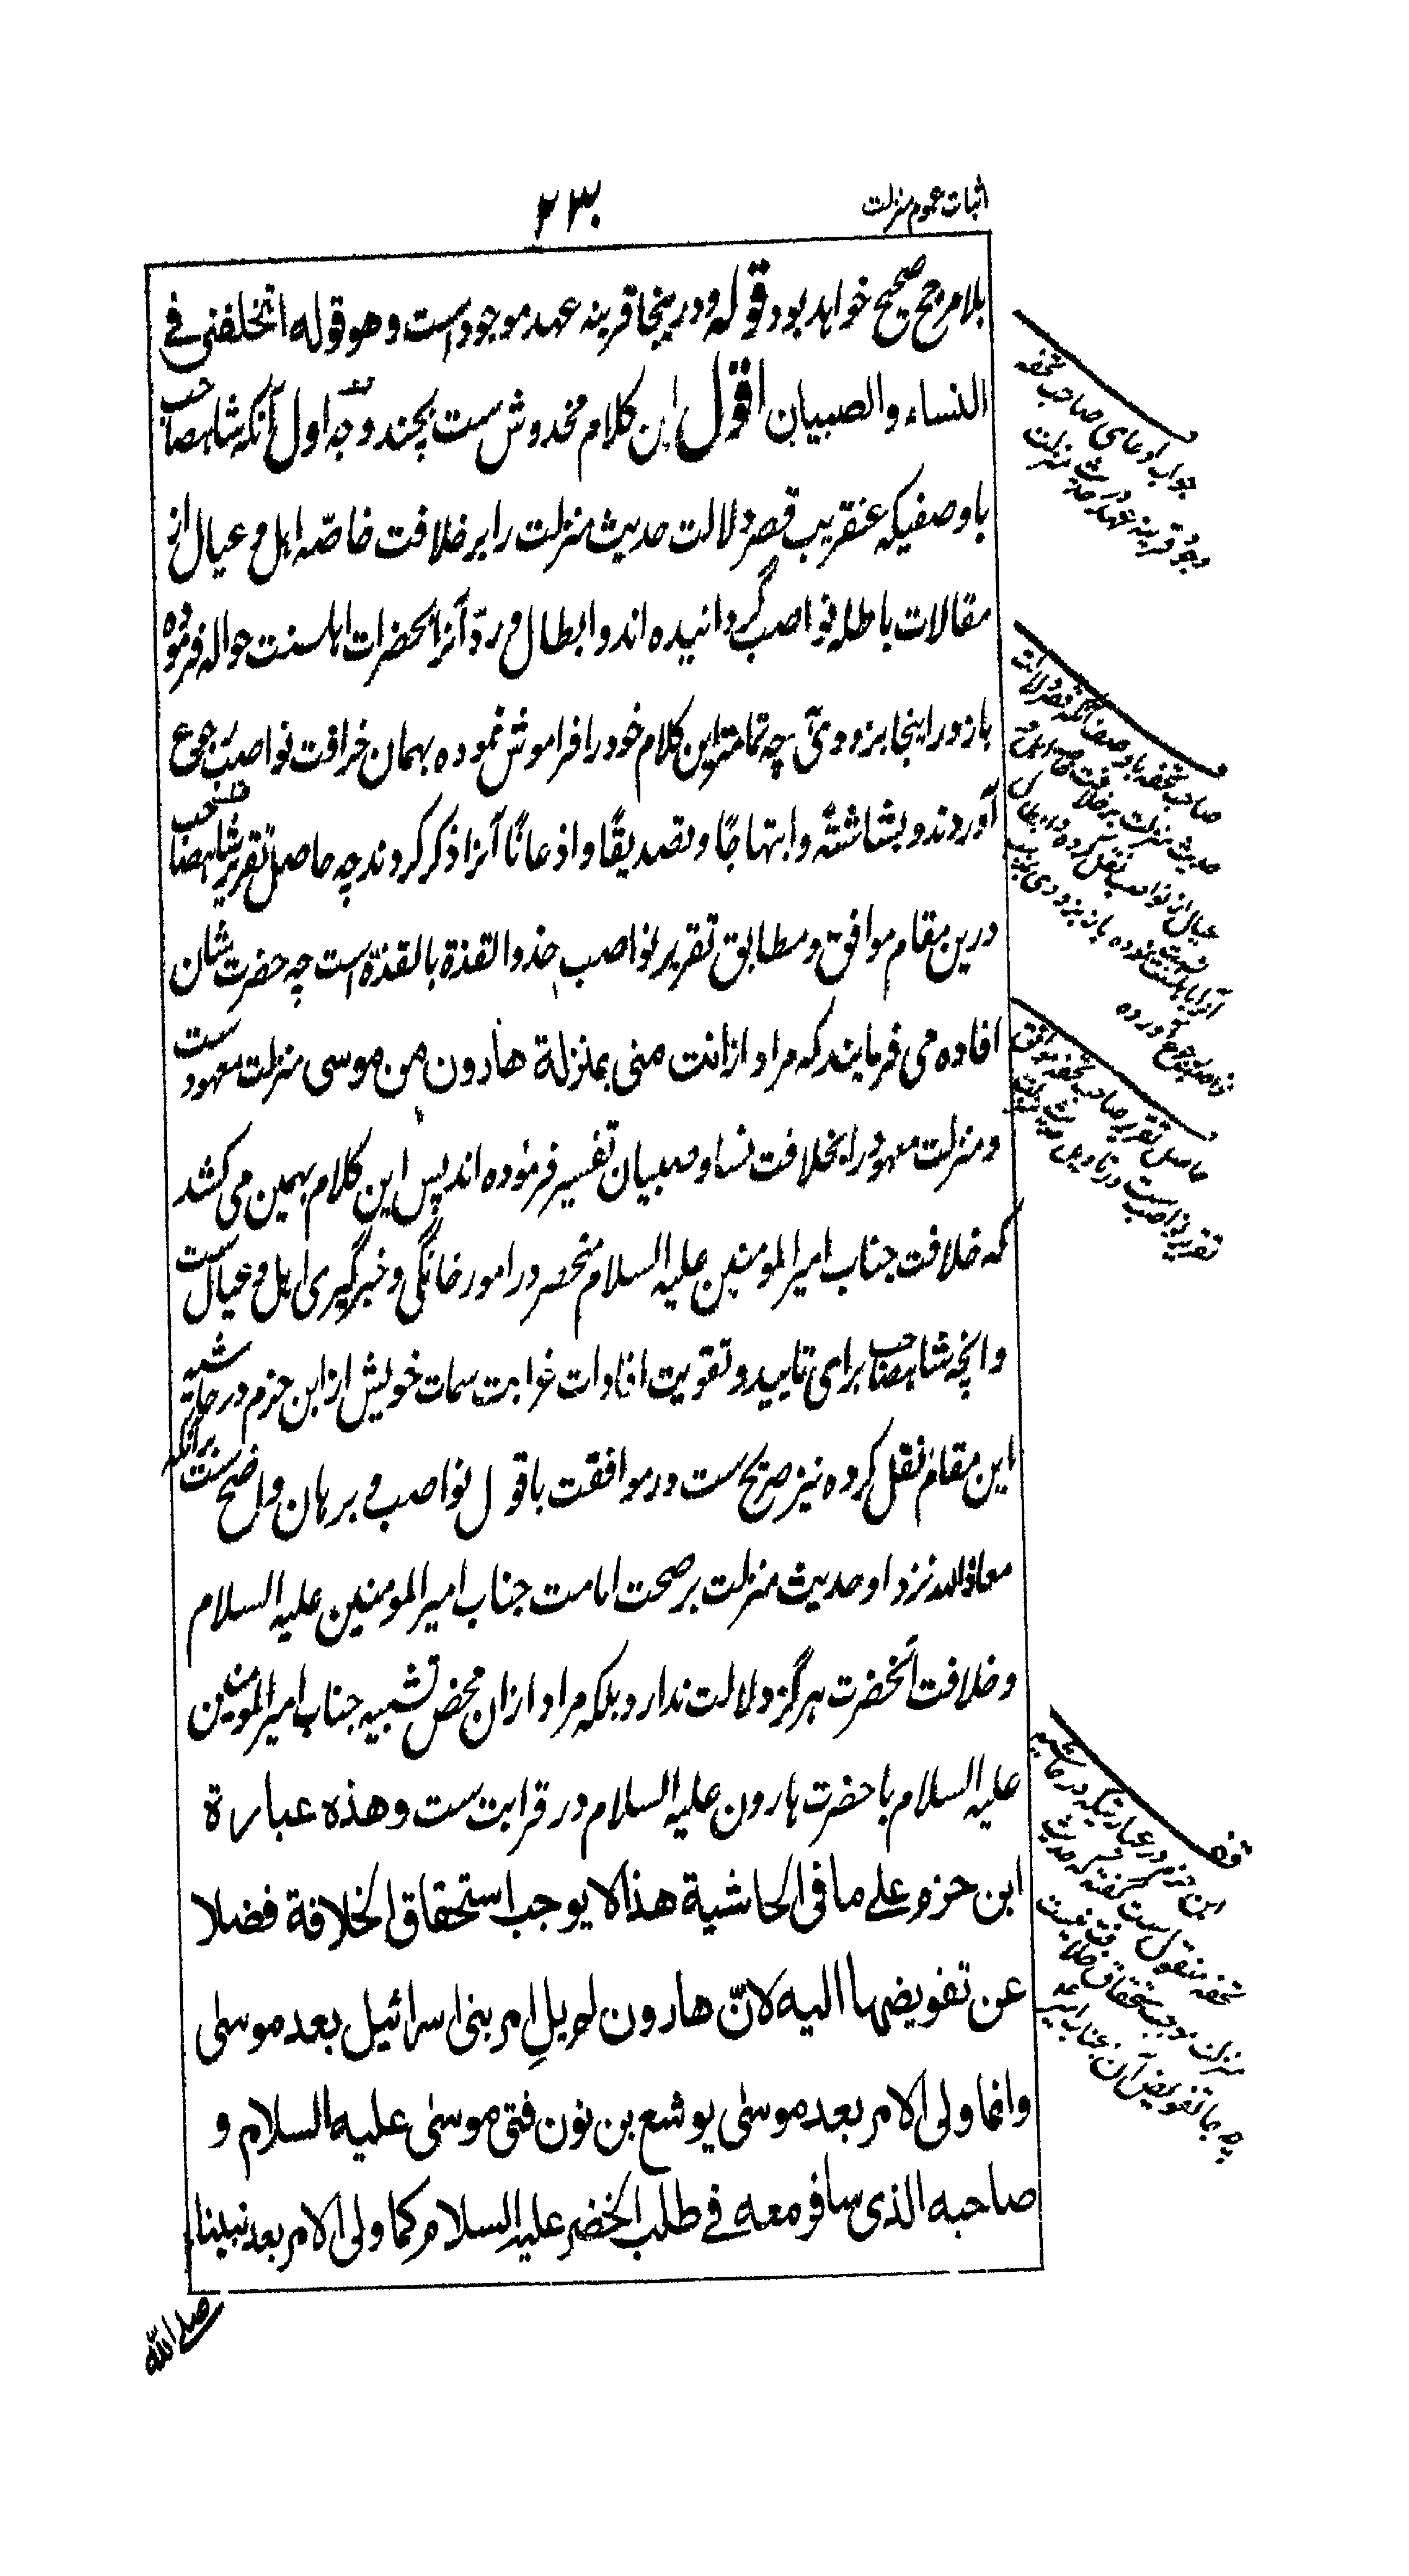 اثبات عموم منزلت
۲۳۰
بلا مرجح صحیح خواهد بود قوله و درینجا قرینه عهد موجود است و هو قوله اتخلفنی فے
النساء والصبیان اقول این کلام مخدوش ست بچند وجه اول آنکه شاهصاحب
باوصفیکه عنقریب قصر دلالت حدیث منزلت را بر خلافت خاصّه اهل و عیال از
مقالات باطله نواصب گردانیده اند و ابطال و ردّ آنرا بحضرات اهلسنت حواله فرموده
باز در اینجا بزودی هر چه تمامتر این کلام خود را فراموش نموده بهمان خرافت نواصب رجوع
آوردند و بشاشتهً و ابتهاجًا و تصدیقًا و اذعانًا آنرا ذکر کردند چه حاصل تقریر شاهصاحب
درین مقام موافق و مطابق تقریر نواصب حذو القذة بالقذة است چه حضرت شان
افاده می فرمایند که مراد از انت منی بمنزلة هارون من موسی منزلت معهود ست
و منزلت معهود را بخلافت نسا و صبیان تفسیر فرموده اند پس این کلام بهمین می کشد
که خلافت جناب امیر المومنین علیه السلام منحصر در امور خانگی و خبرگیری اهل و عیال ست
و انچه شاهصاحب برای تایید و تقویت افادات غرابت سمات خویش از ابن حزم در حاشیه
این مقام نقل کرده نیز صریح ست در موافقت با قول نواصب و برهان واضح ست برآنکه
معاذالله نزد او حدیث منزلت بر صحت امامت جناب امیر المومنین علیه السلام
و خلافت آنحضرت هرگز دلالت ندارد بلکه مراد ازان محض تشبیه جناب امیر المومنین
علیه السلام با حضرت هارون علیه السلام در قرابت ست وهذه عبارة
ابن حزم علے ما فی الحاشیة هذا لا یوجب استحقاق الخلافة فضلا
عن تفویضها الیه لانّ هارون لم یلِ امر بنی اسرائیل بعد موسٰی
وانما ولی الامر بعد موسٰی یوشع بن نون فتی موسٰی علیه السلام و
صاحبه الذی سافر معه فے طلب الخضر علیه السلام کما ولی الامر بعد نبینا
صلے الله
جواب ادعای صاحب تحفه
وجود قرینه عهد در حدیث منزلت
صاحب تحفه باوصفیکه قصر دلالت
حدیث منزلت بر خلافت خاصه اهل و
عیال از نواصب نقل کرده و ابطال
آنرا باهلسنت نموده باز بزودی
نواصب رجوع آورده
حاصل تقریر صاحب تحفه موافق
تقریر نواصب ست در تاویل حدیث منزلت
ابن حزم در عبارتیکه در حاشیه
تحفه منقول ست گفته که حدیث
منزلت موجب استحقاق خلافت نیست
چه جا تفویض آن بجناب امیر